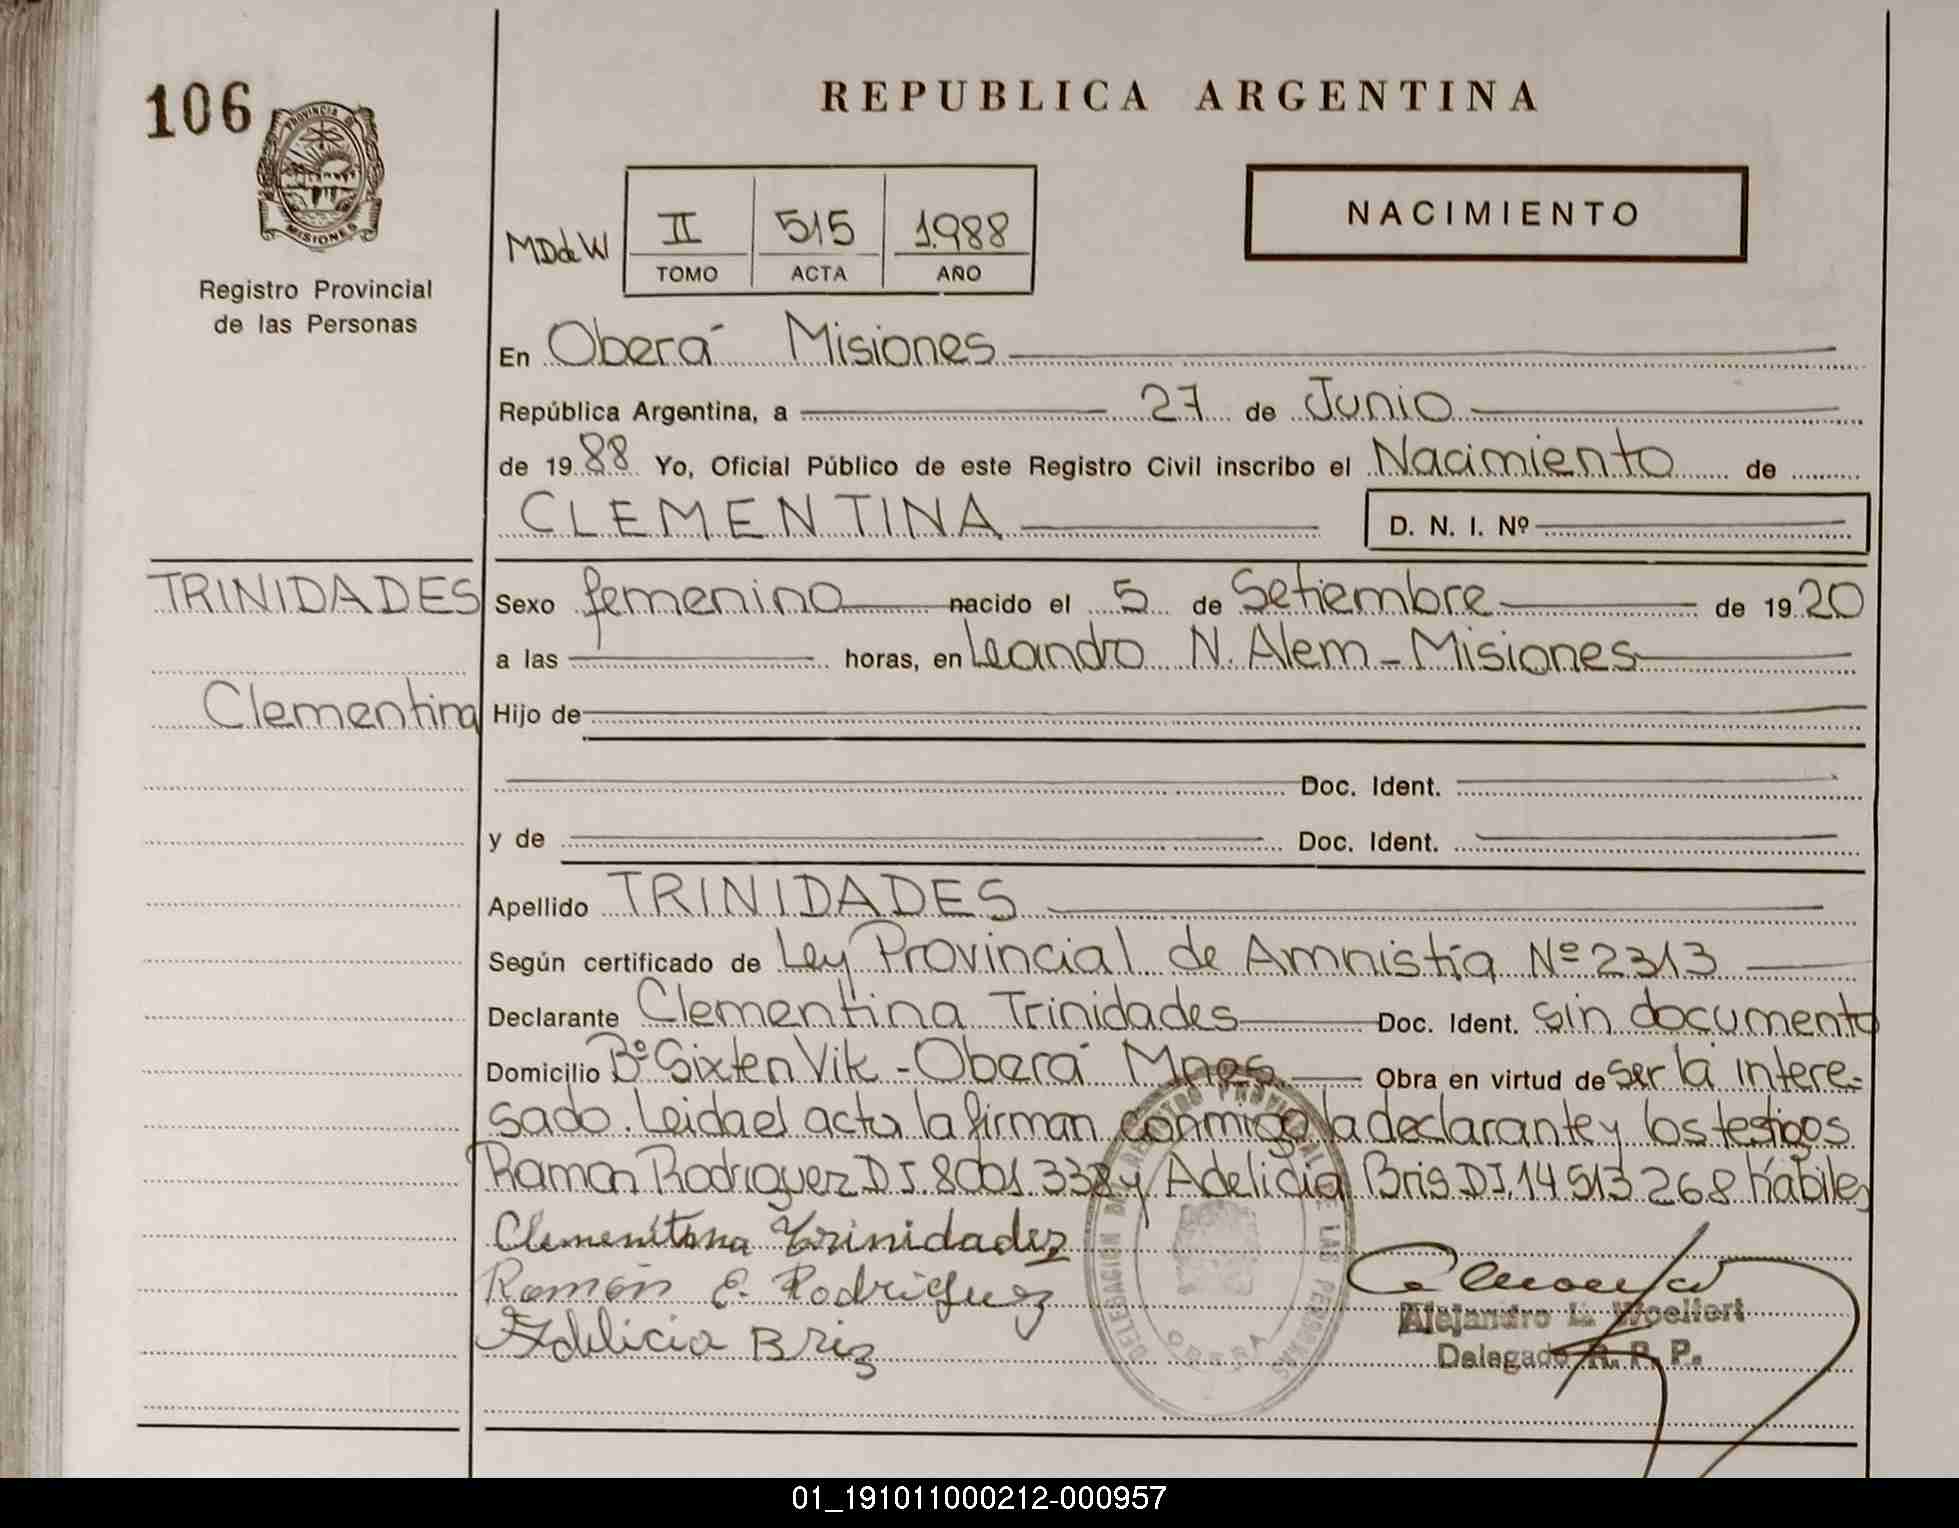 106
PROVINCIA DE
MISIONES
Registro Provincial
de las Personas
REPUBLICA ARGENTINA
MDdeW
II 515 1988
TOMO ACTA AÑO
NACIMIENTO
En Oberá Misiones
República Argentina, a 27 de Junio
de 19 88 Yo, Oficial Público de este Registro Civil inscribo el Nacimiento de
CLEMENTINA D. N. I. Nº
TRINIDADES
Clementina
Sexo femenino nacido el 5 de Setiembre de 19 20
a las horas, en Leandro N. Alem - Misiones
Hijo de
Doc. Ident.
y de Doc. Ident.
Apellido TRINIDADES
Según certificado de Ley Provincial de Amnistía Nº 2313
Declarante Clementina Trinidades Doc. Ident. sin documento
Domicilio Bº Sixten Vik - Oberá Mnes Obra en virtud de ser la intere=
sado. Leida el acta la firman conmigo la declarante y los testigos
Ramon Rodriguez DI. 8001.338 y Adelicia Bris DI. 14 513 268 hábiles
Clementina Trinidadez
Ramón E. Rodriguez
Adelicia Briz
DELEGACION DEL REGISTRO PROVINCIAL DE LAS PERSONAS
OBERA
Alejandro L. Woelfert
Delegado R. P. P.
01_191011000212-000957